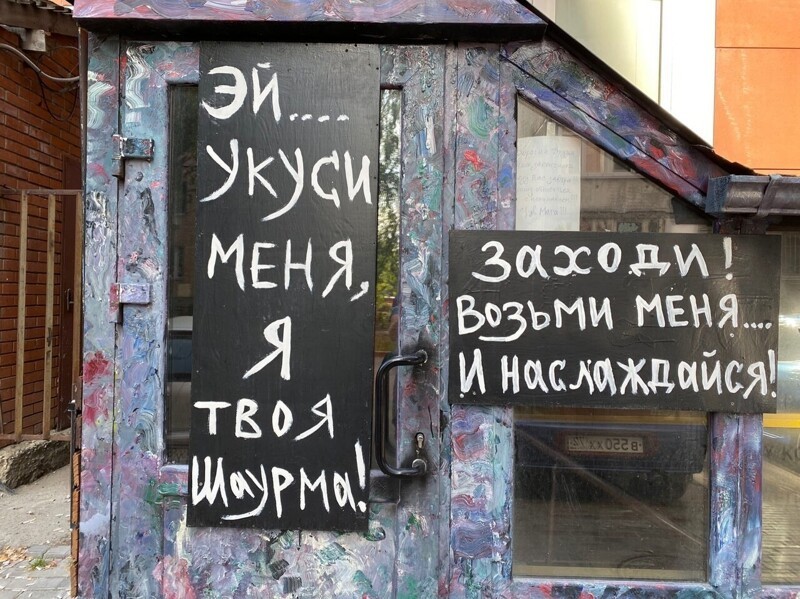 ЭЙ....
УКУСИ
МЕНЯ,
Я
ТВОЯ
Шаурма!
Заходи!
Возьми меня....
И наслаждайся!